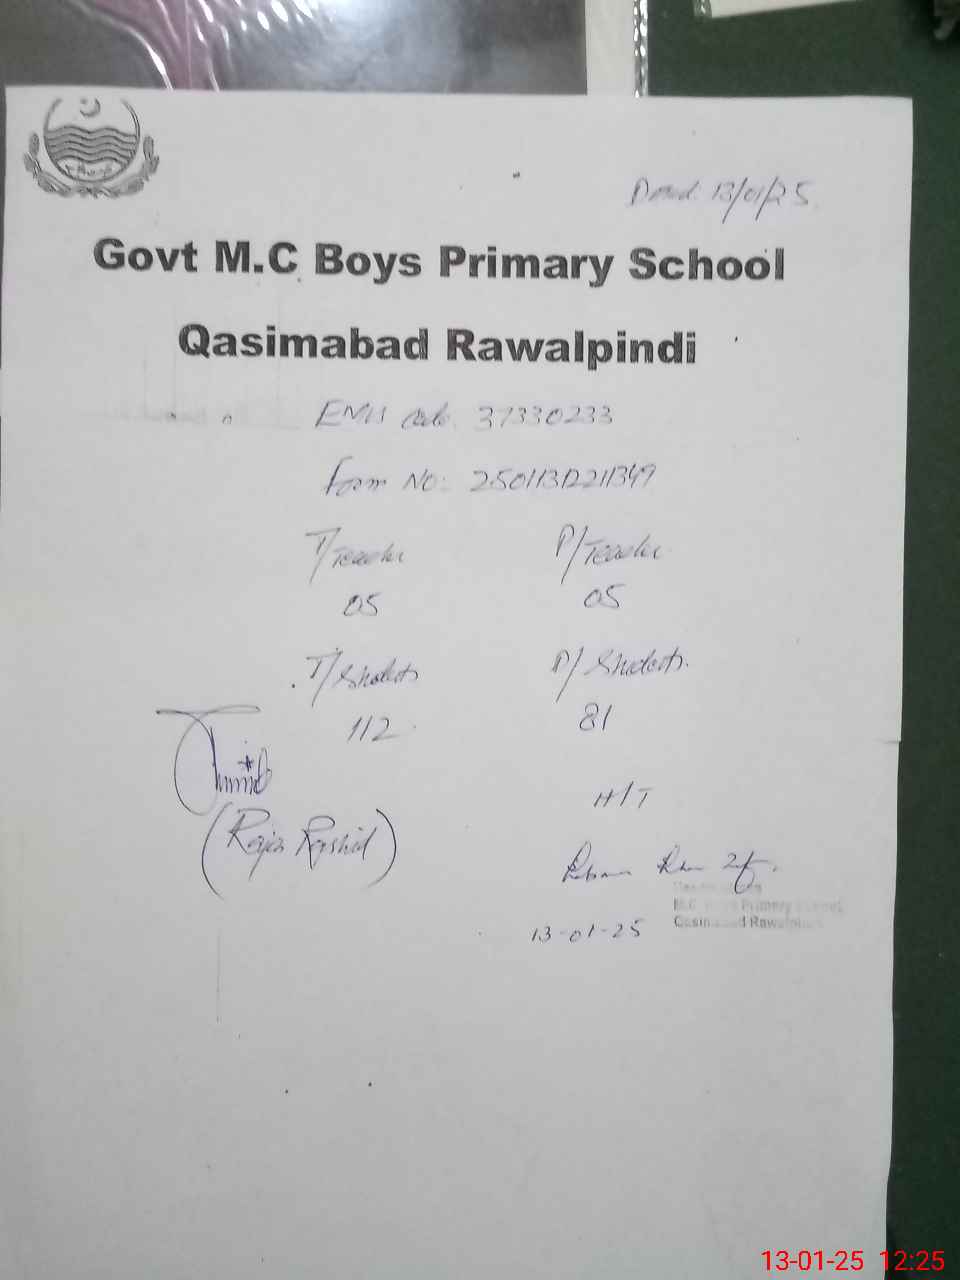 Dated 13/01/25.
Govt M.C Boys Primary School
Qasimabad Rawalpindi
EMIS Code. 37330233
Form No: 
T/Teacher P/Teacher
05 05
T/Students P/Students.
112 81
H/T
(Raja Rashid)
M.C Boys Primary School
Qasimabad Rawalpindi
13-01-25
13-01-25 12:25